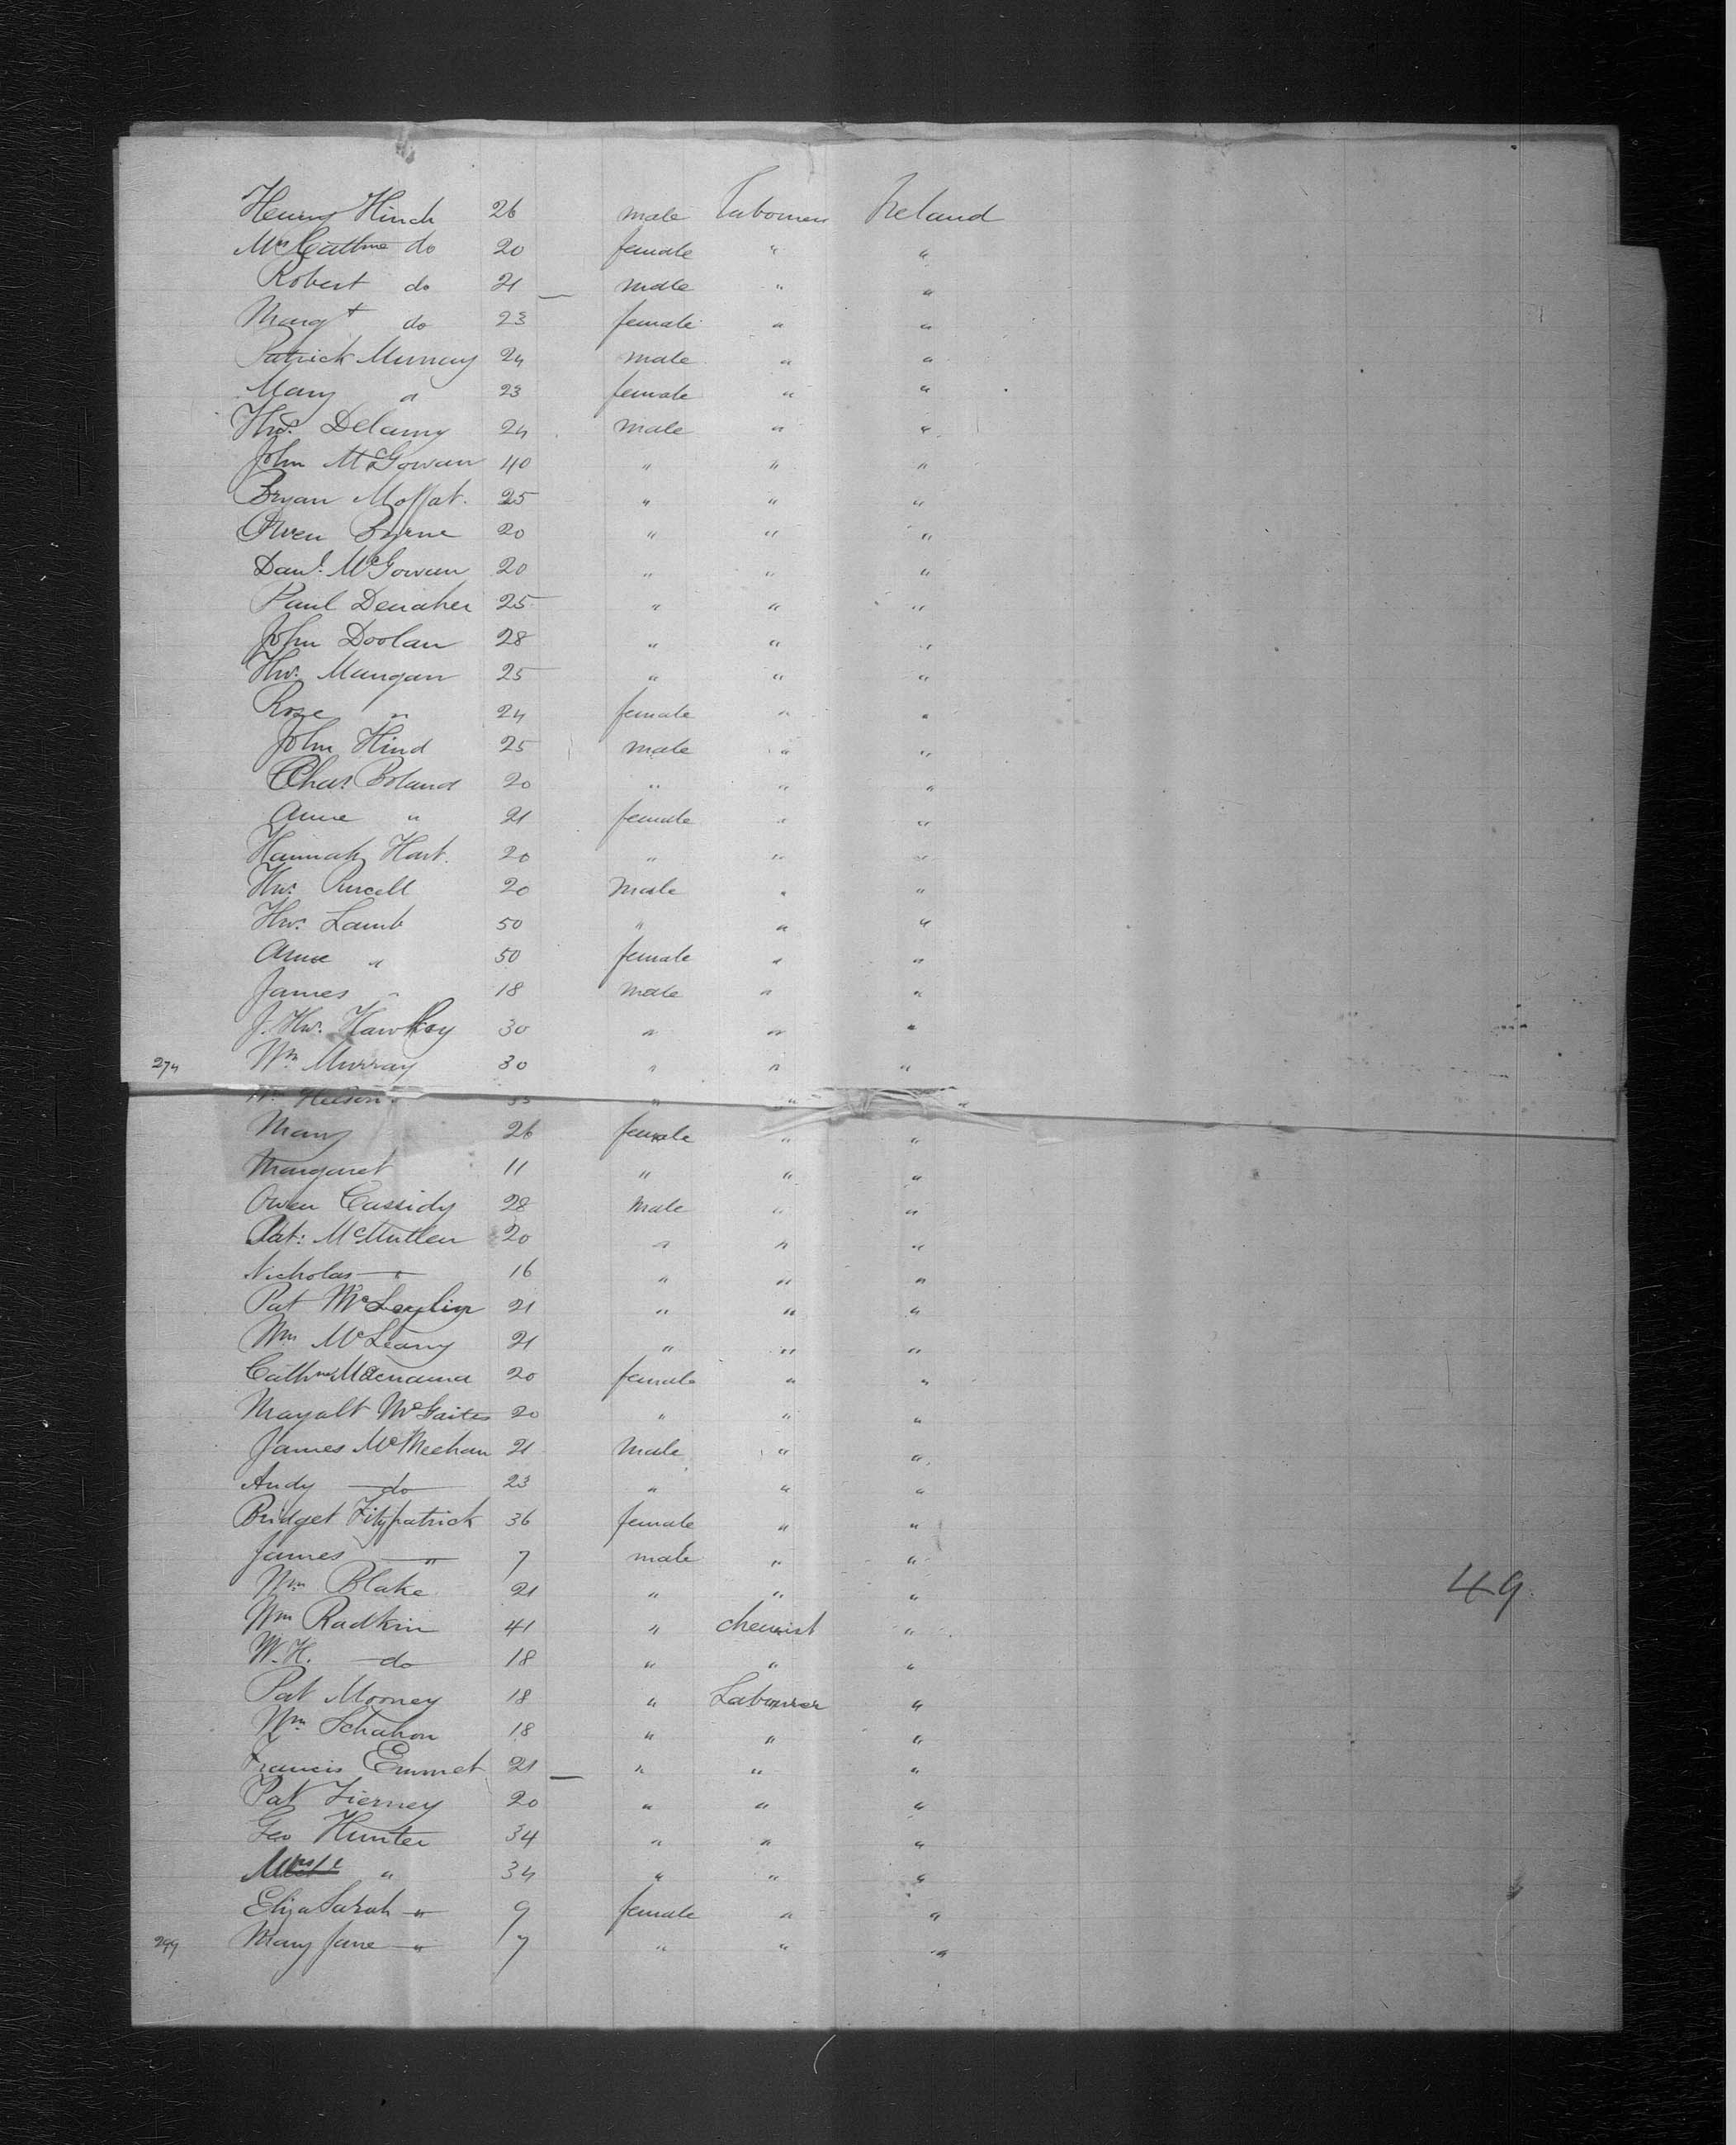 Henry Hinch 26 male Labourer Ireland
Mrs Cathne do 20 female " "
Robert do 21 male " "
Margt do 23 female " "
Patrick Murray 24 male " "
Mary " 23 female " "
Thos. Delamy 24 male " "
John McGowan 40 " " "
Bryan Moffat. 25 " " "
Owen Byrne 20 " " "
Danl. McGowan 20 " " "
Paul Denaher 25 " " "
John Doolan 28 " " "
Thos. Mangan 25 " " "
Rose " 24 female " "
John Hind 25 male " "
Chas Boland 20 " " "
Anne " 21 female " "
Hannah Hart. 20 " " "
Thos. Purcell 20 Male " "
Thos. Lamb 50 " " "
Anne " 50 female " "
James " 18 male " "
J. Thos. 30 " " "
274 Wm Murray 30 " " "
" " "
Mary 26 female " "
Margaret 11 " " "
Owen Cassidy 28 Male " "
Pat: McMullen 20 " " "
Nicholas " 16 " " "
Pat 21 " " "
Wm McLeary 21 " " "
Cathne 20 female " "
20 " " "
James McMeehan 21 Male " "
Andy do 23 " " "
Bridget Fitzpatrick 36 female " "
James " 7 male " "
Wm Blake 21 " " "
49
Wm Radkin 41 " chemist "
W. H. do 18 " " "
Pat Mooney 18 " Labourer "
Wm 18 " " "
Francis Emmet 21 " " "
Pat Tierney 20 " " "
Geo Hunter 34 " " "
" 34 " " "
Eliza Sarah " 9 female " "
299 Mary Jane " 7 " " "